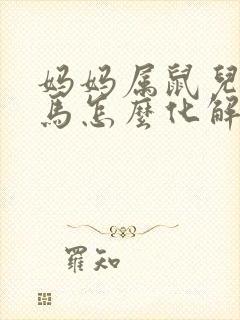 妈妈属鼠兒
馬怎麼化解
羅知